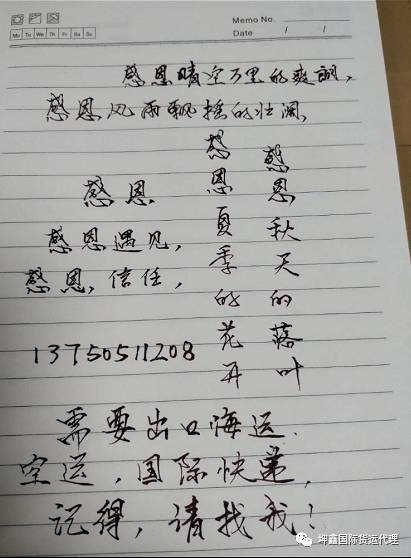 Memo No.
Mo Tu We Th Fr Sa Su
Date / /
感恩晴空万里的爽朗,
感恩风雨飘摇的壮阔,
感恩夏季的花开
感恩秋天的落叶
感恩
感恩遇见,
感恩,信任,
13750511208
需要出口海运.
空运,国际快递,
记得,请找我!
坤鑫国际货运代理